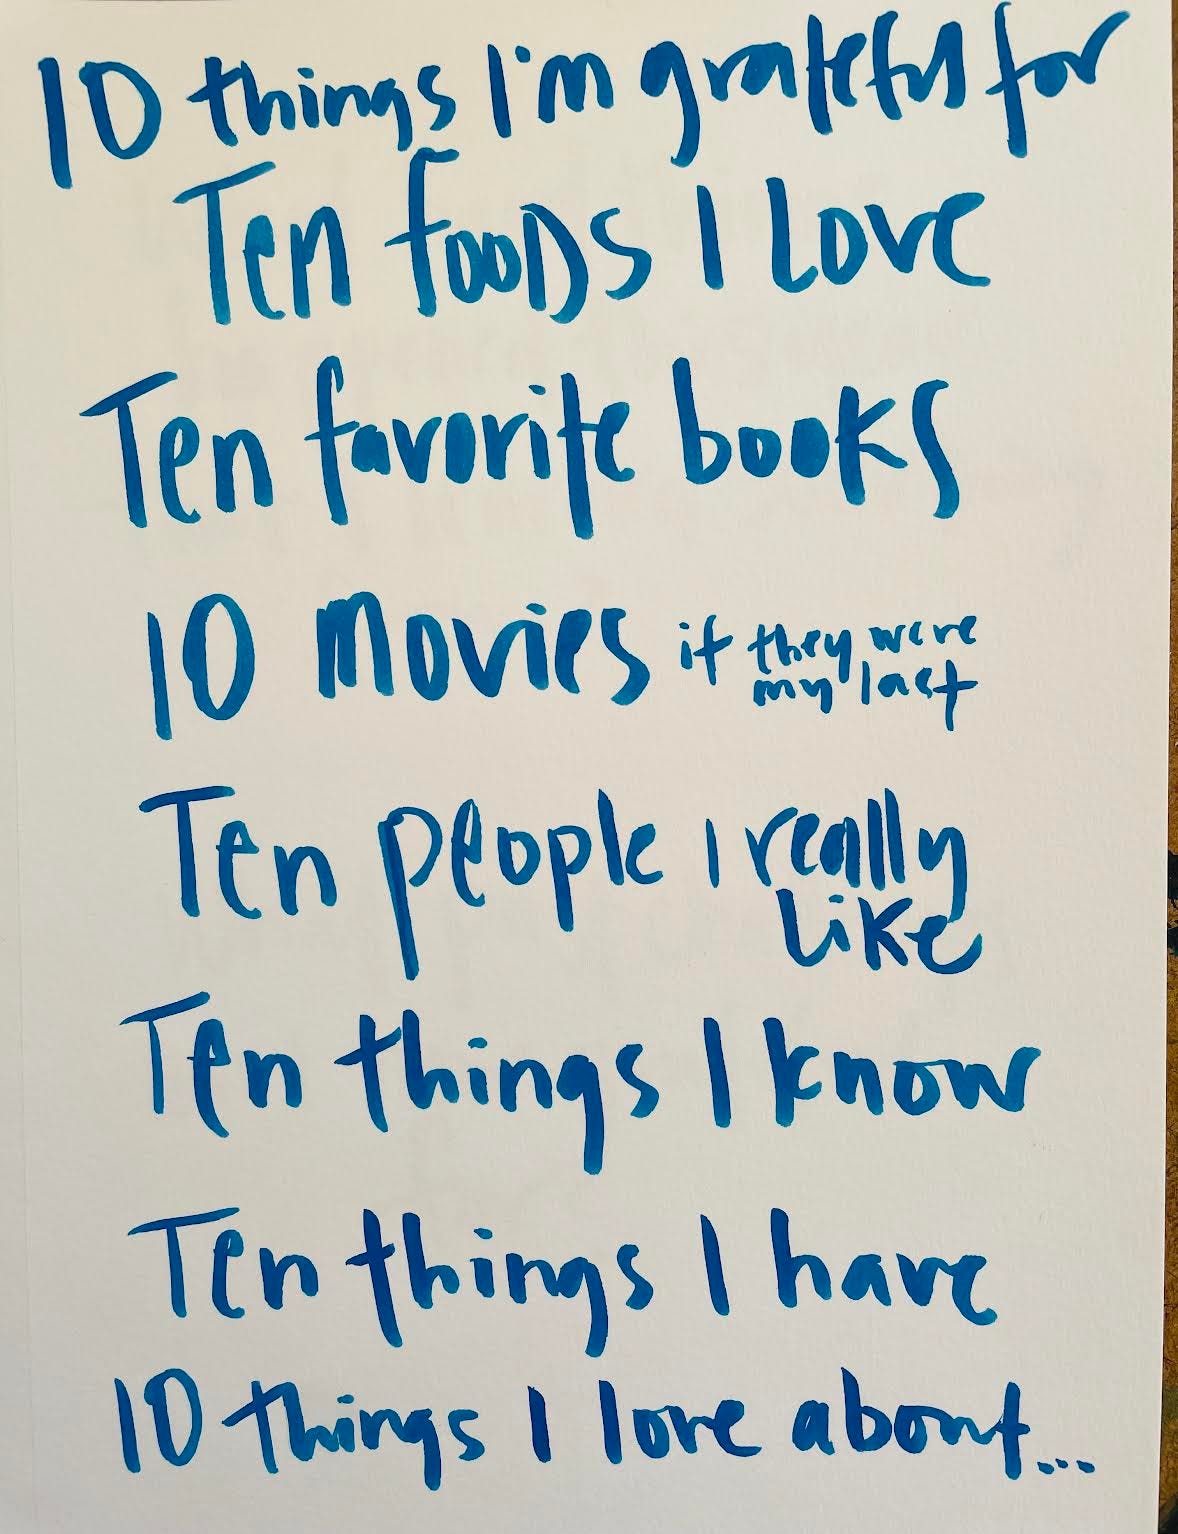 10 things I'm grateful for
Ten fooDs I Love
Ten favorite books
10 movies if they were
my last
Ten people I really
like
Ten things I know
Ten things I have
10 things I love about...